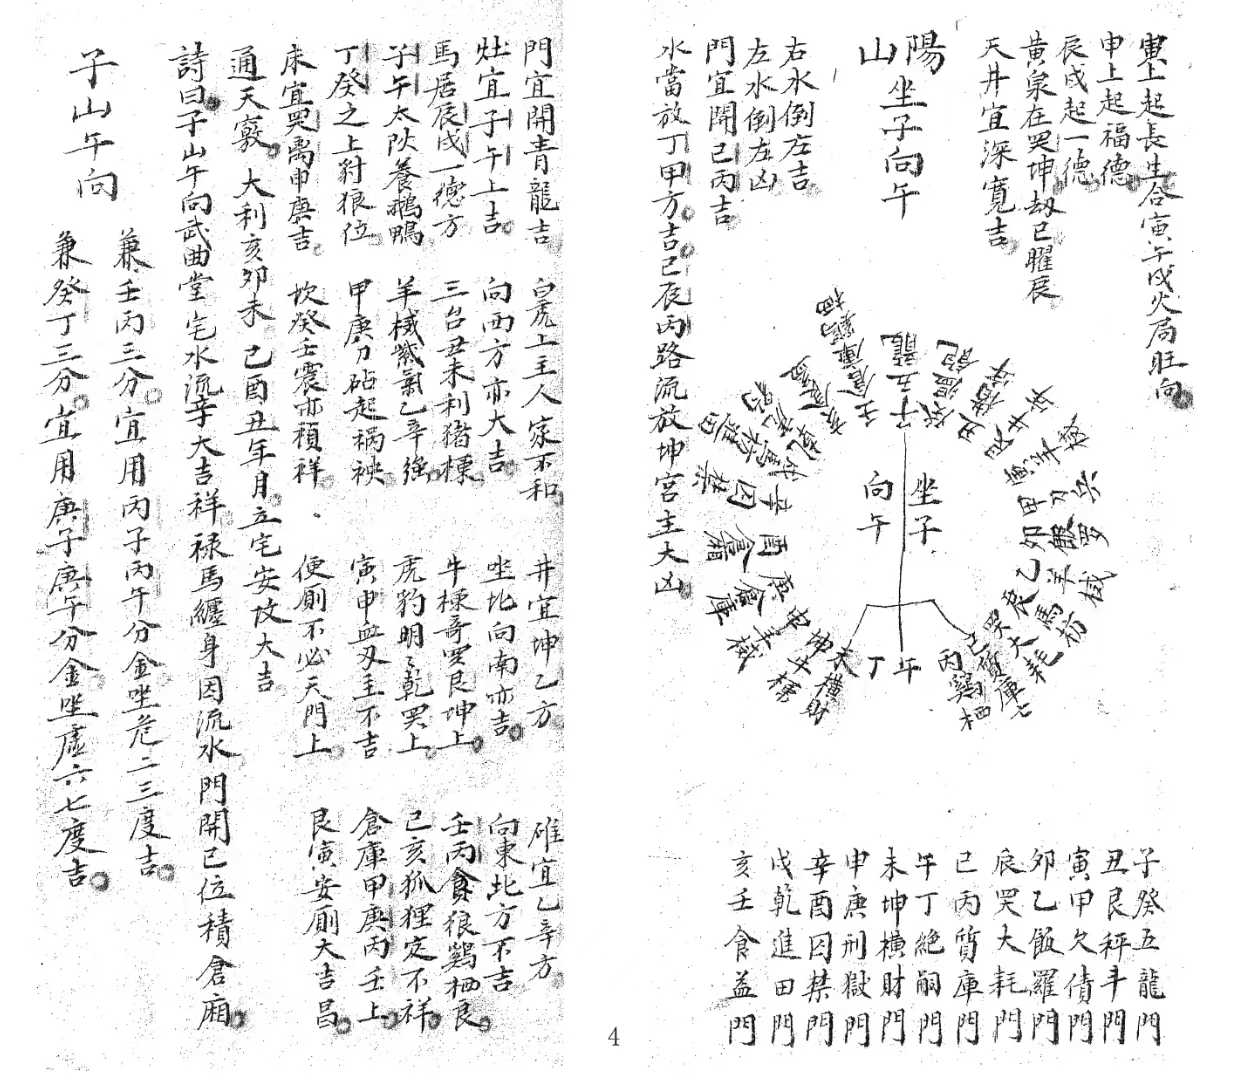 寅上起長生合寅午戌火局旺向
申上起福德
辰戌起一德
黃泉在巽坤劫巳曜辰
天井宜深寬吉
陽山
坐子向午
右水倒左吉
左水倒右凶
門宜開巳丙吉
水當放丁甲方吉巳辰丙路流放坤宮主大凶
坐子
向午
子五龍
午
丁
未橫財
坤牛棟
申羊棧
庚倉庫
酉倉廂
辛囚禁
乙羊棧
辰馬枋
巽大耗
巳質庫
丙鷄栖
子癸五龍門
丑艮秤斗門
寅甲欠債門
卯乙飯羅門
辰巽大耗門
巳丙質庫門
午丁絶嗣門
未坤橫財門
申庚刑獄門
辛酉囚禁門
戌乾進田門
亥壬食益門
4
門宜開青龍吉 白虎上主人家不和 井宜坤乙方 碓宜乙辛方
灶宜子午上吉 向西方亦大吉 坐北向南亦吉 向東北方不吉
馬居辰戌一德方 三台丑未利猪棟 牛棟寄巽艮坤上 壬丙貪狼鷄栖良
子午太阦養鵝鴨 羊棧紫氣乙辛強 虎豹明乾巽上 巳亥狐狸定不祥
丁癸之上豺狼位 甲庚刀砧起禍殃 寅申血刃主不吉 倉庫甲庚丙壬上
未宜巽禹申庚吉 坎癸壬震亦禎祥 便廁不必天門上 艮寅安廁大吉昌
通天竅 大利亥卯未 巳酉丑年月立宅安坟大吉
詩曰子山午向武曲堂宅水流辛大吉祥祿馬纏身因流水門開巳位積倉廂
子山午向
兼壬丙三分宜用丙子丙午分金坐危二三度吉
兼癸丁三分宜用庚子庚午分金坐虛六七度吉